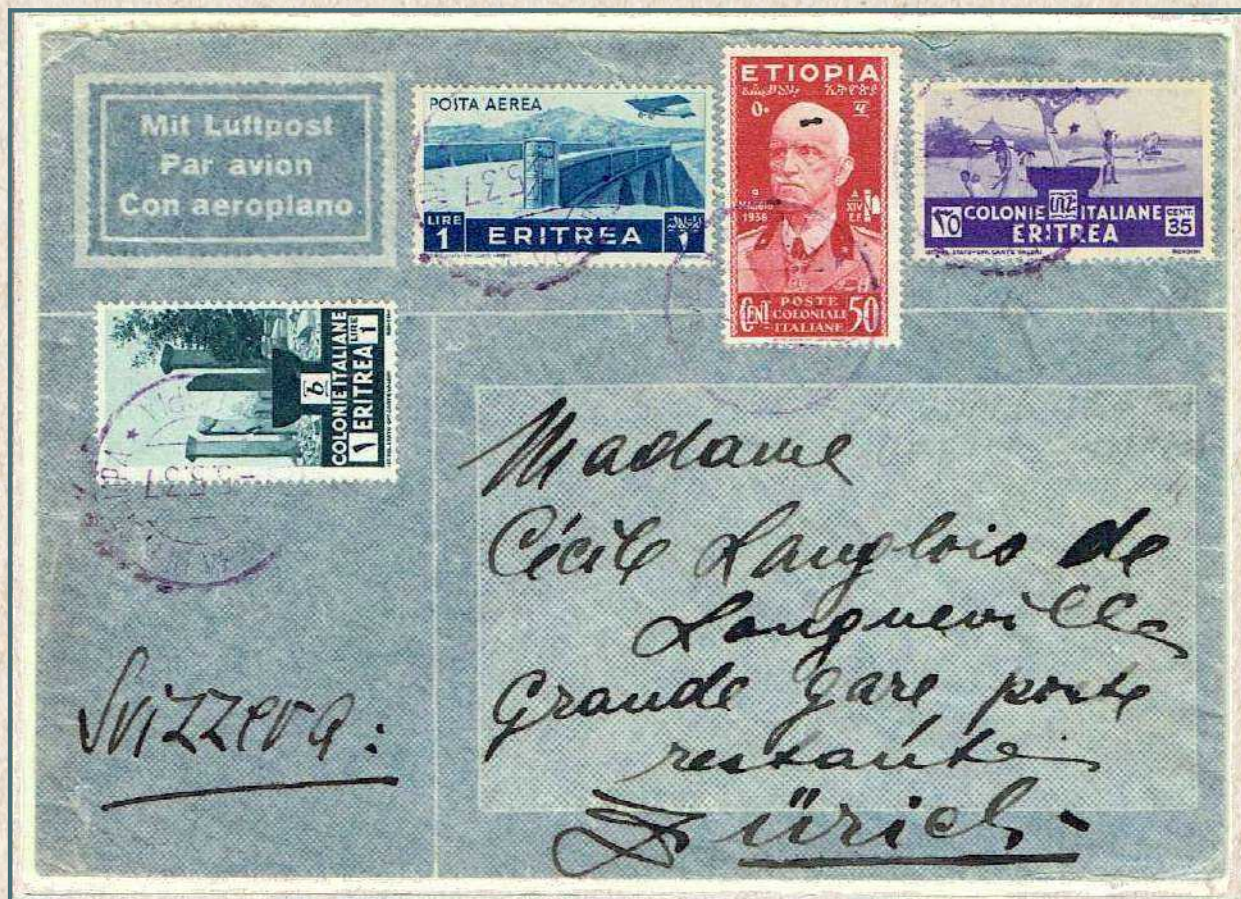 Mit Luftpost
Par avion
Con aeroplano
POSTA AEREA
LIRE
1
ERITREA
5.37
ETIOPIA
9
MAGGIO
1936
A
XIV
E.F.
POSTE
COLONIALI
ITALIANE
CENT 50
COLONIE ITALIANE
ERITREA
CENT.
35
COLONIE ITALIANE
ERITREA
LIRE
1
5.37
Madame
Cécile Langlois de
Longueville
Grande gare poste
restante
Zürich
Svizzera: